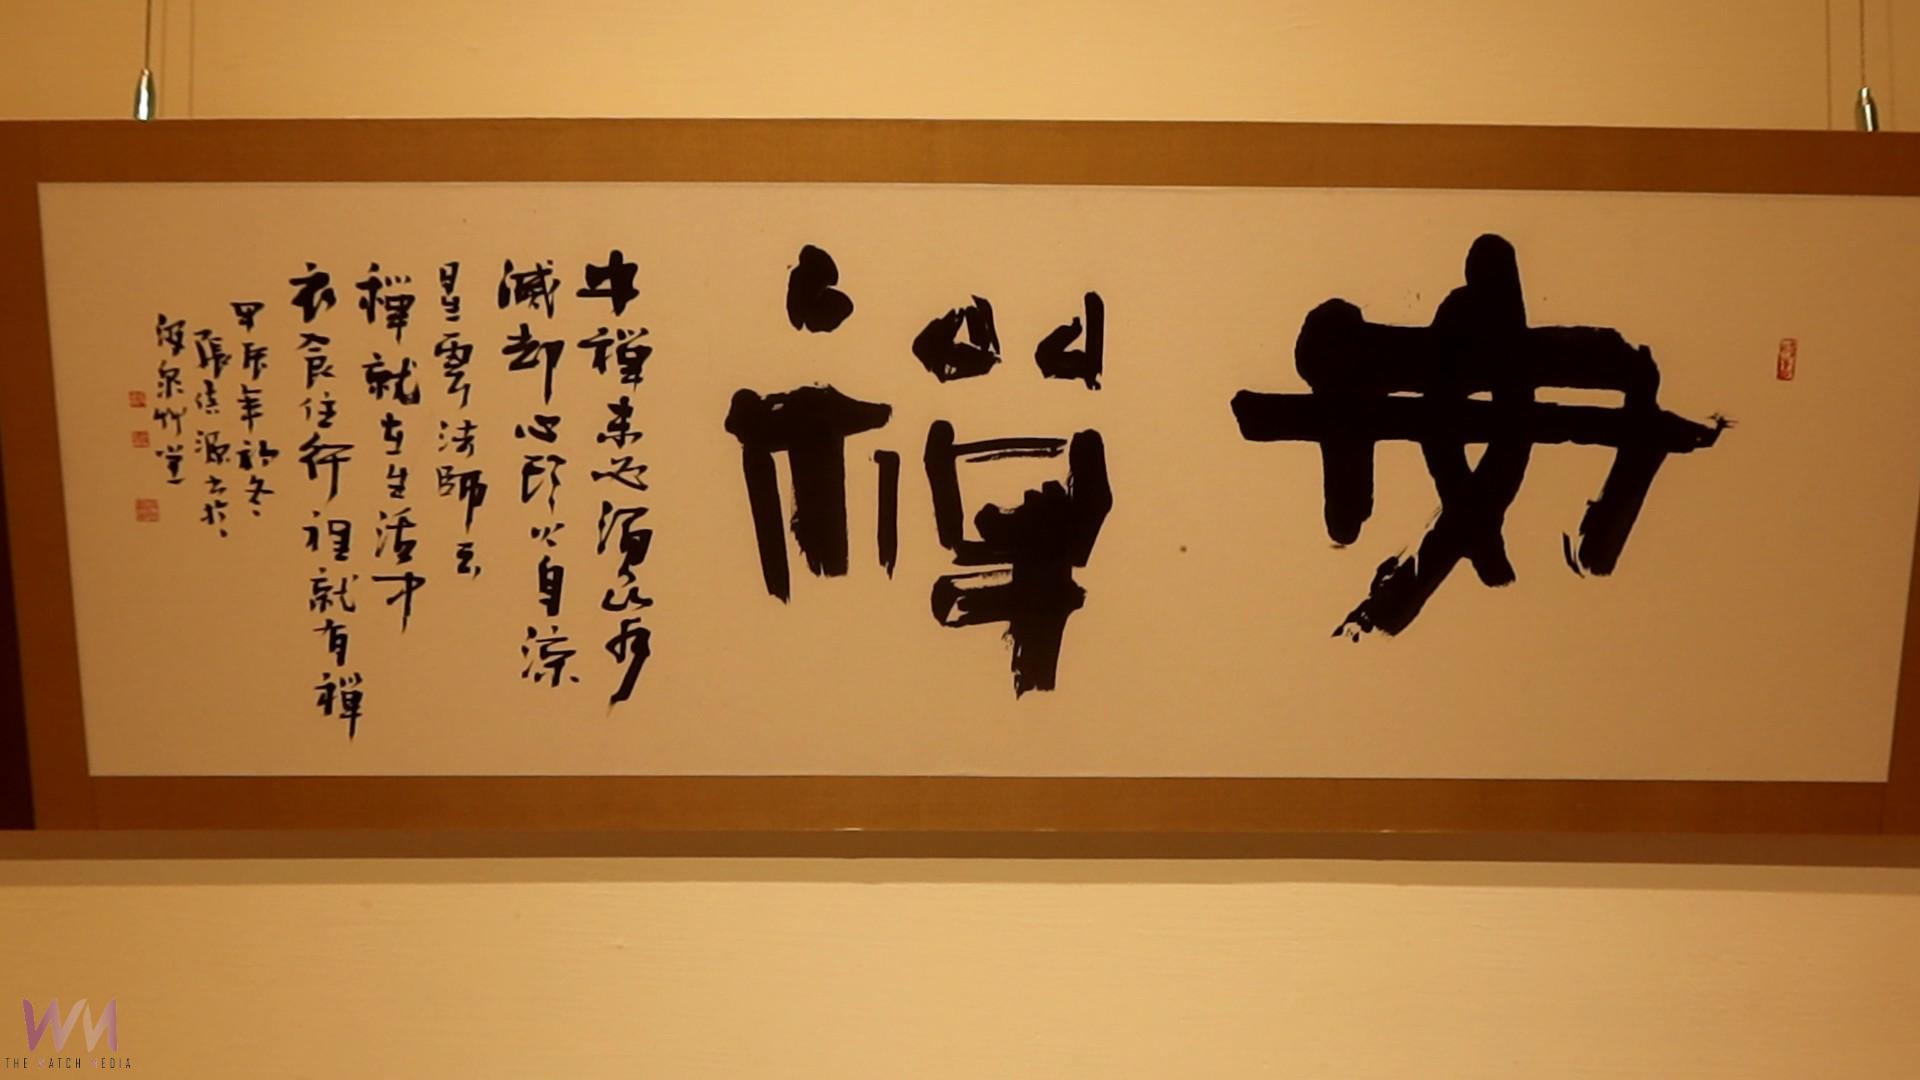 安禪
安禪未必須山水
滅却心頭火自涼
星雲法師云
禪就在生活中
衣食住行裡就有禪
甲辰年初冬
張 源書於
泉竹堂
WM
THE WATCH MEDIA